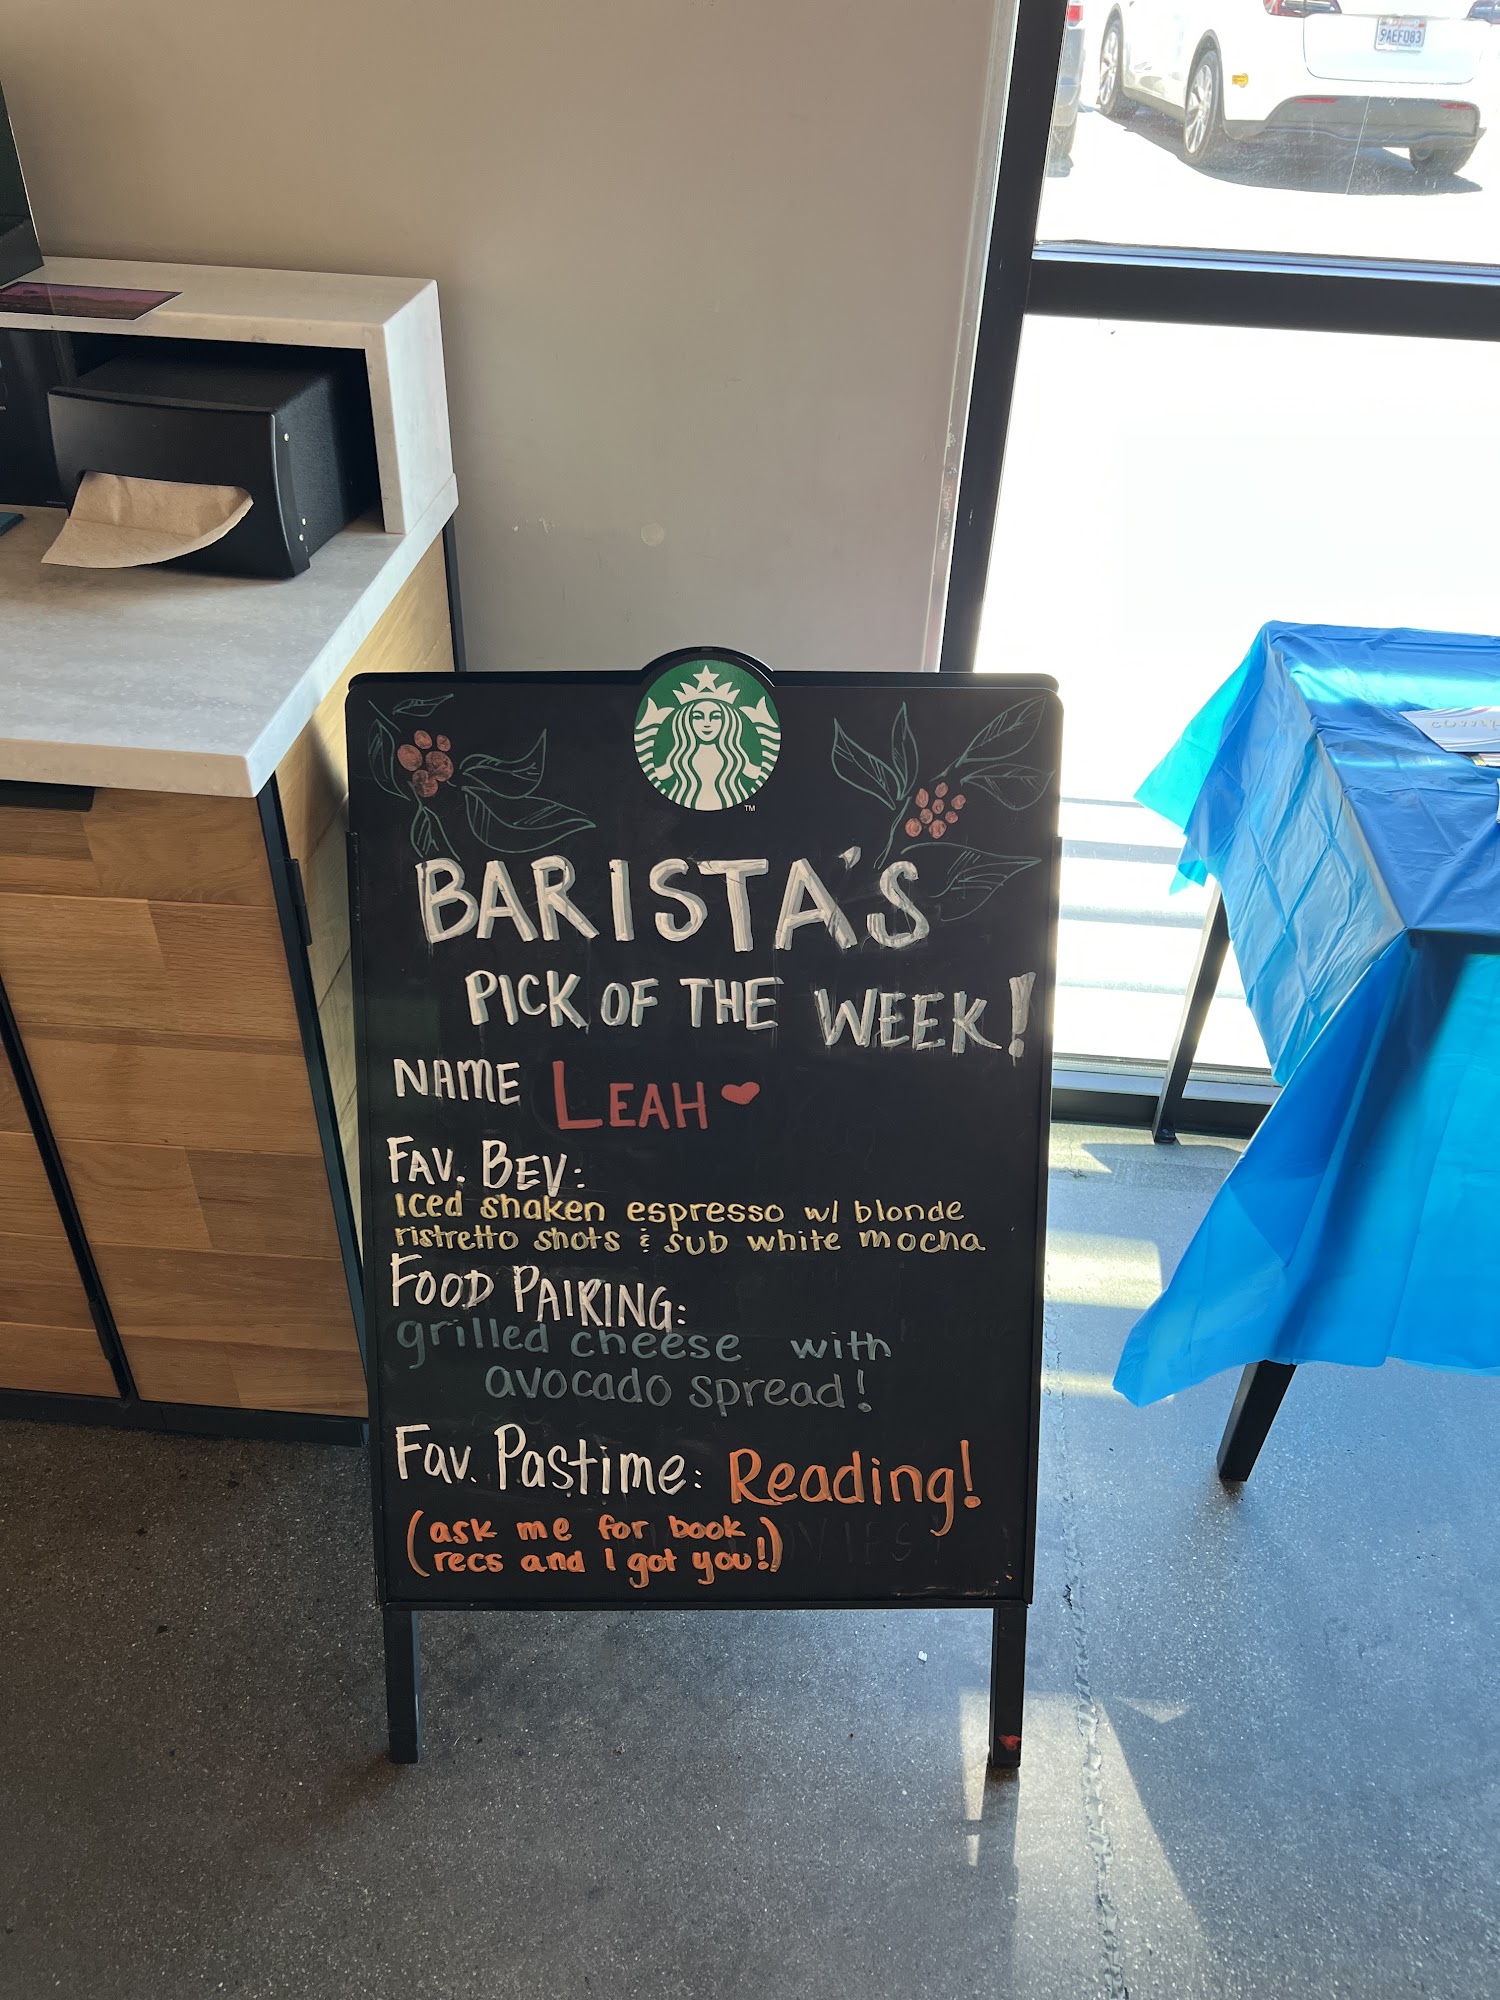 9AEF083
TM
BARISTA'S
PICK OF THE WEEK!
NAME LEAH
FAV. BEV:
iced shaken espresso w/ blonde
ristretto shots & sub white mocha
FOOD PAIRING:
grilled cheese with
avocado spread!
Fav. Pastime: Reading!
(ask me for book
recs and I got you!)